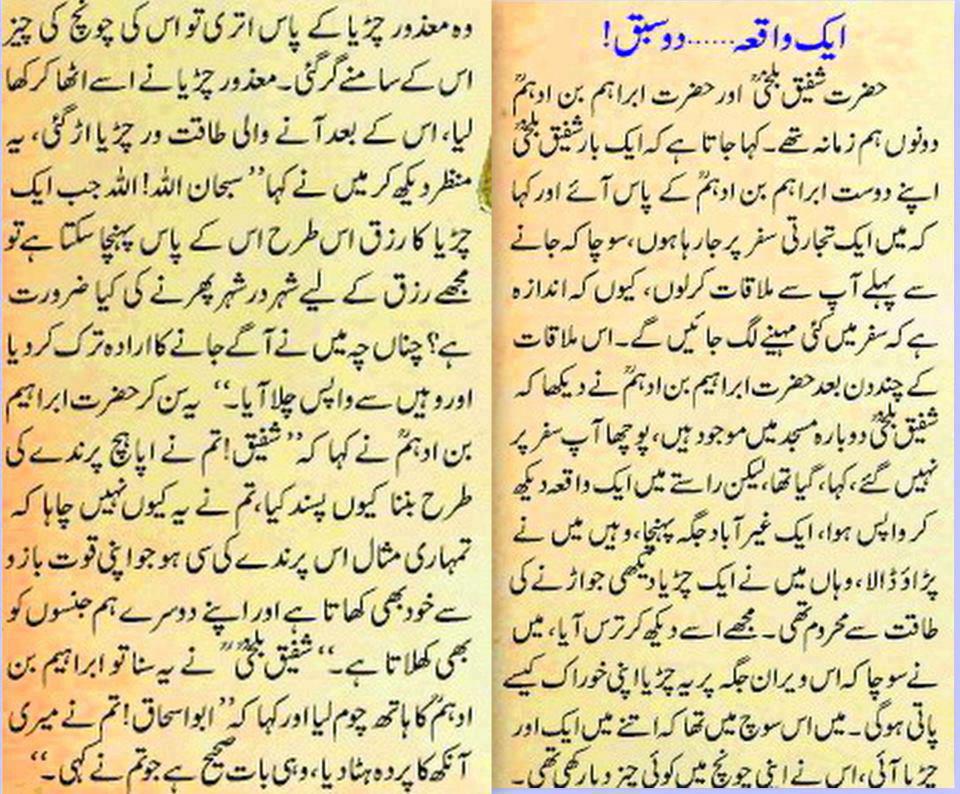 ایک واقعہ......دو سبق!
حضرت شفیق بلخیؒ اور حضرت ابراہم بن ادہمؒ
دونوں ہم زمانہ تھے۔ کہا جاتا ہے کہ ایک بار شفیق بلخیؒ
اپنے دوست ابراہم بن ادہمؒ کے پاس آئے اور کہا
کہ میں ایک تجارتی سفر پر جا رہا ہوں، سوچا کہ جانے
سے پہلے آپ سے ملاقات کرلوں، کیوں کہ اندازہ
ہے کہ سفر میں کئی مہینے لگ جائیں گے۔ اس ملاقات
کے چند دن بعد حضرت ابراہیم بن ادہمؒ نے دیکھا کہ
شفیق بلخیؒ دوبارہ مسجد میں موجود ہیں، پوچھا آپ سفر پر
نہیں گئے، کہا، گیا تھا، لیکن راستے میں ایک واقعہ دیکھ
کر واپس ہوا، ایک غیر آباد جگہ پہنچا، وہیں میں نے
پڑاؤ ڈالا، وہاں میں نے ایک چڑیا دیکھی جو اڑنے کی
طاقت سے محروم تھی۔ مجھے اسے دیکھ کر ترس آیا، میں
نے سوچا کہ اس ویران جگہ پر یہ چڑیا اپنی خوراک کیسے
پاتی ہوگی۔ میں اس سوچ میں تھا کہ اتنے میں ایک اور
چڑیا آئی، اس نے اپنی چونچ میں کوئی چیز دبا رکھی تھی۔
وہ معذور چڑیا کے پاس اتری تو اس کی چونچ کی چیز
اس کے سامنے گر گئی۔ معذور چڑیا نے اسے اٹھا کر کھا
لیا، اس کے بعد آنے والی طاقت ور چڑیا اڑ گئی، یہ
منظر دیکھ کر میں نے کہا ’’سبحان اللہ! اللہ جب ایک
چڑیا کا رزق اس طرح اس کے پاس پہنچا سکتا ہے تو
مجھے رزق کے لیے شہر در شہر پھرنے کی کیا ضرورت
ہے؟ چناں چہ میں نے آگے جانے کا ارادہ ترک کر دیا
اور وہیں سے واپس چلا آیا۔‘‘ یہ سن کر حضرت ابراہیم
بن ادہمؒ نے کہا کہ ’’شفیق! تم نے اپاہچ پرندے کی
طرح بننا کیوں پسند کیا، تم نے یہ کیوں نہیں چاہا کہ
تمہاری مثال اس پرندے کی سی ہو جو اپنی قوت بازو
سے خود بھی کھاتا ہے اور اپنے دوسرے ہم جنسوں کو
بھی کھلاتا ہے۔‘‘ شفیق بلخیؒ نے یہ سنا تو ابراہیم بن
ادہمؒ کا ہاتھ چوم لیا اور کہا کہ ’’ابو اسحاق! تم نے میری
آنکھ کا پردہ ہٹا دیا، وہی بات صحیح ہے جو تم نے کہی۔‘‘